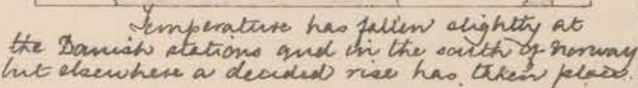 Temperature has fallen slightly at
the Danish stations and in the south of Norway
but elsewhere a decided rise has taken place.